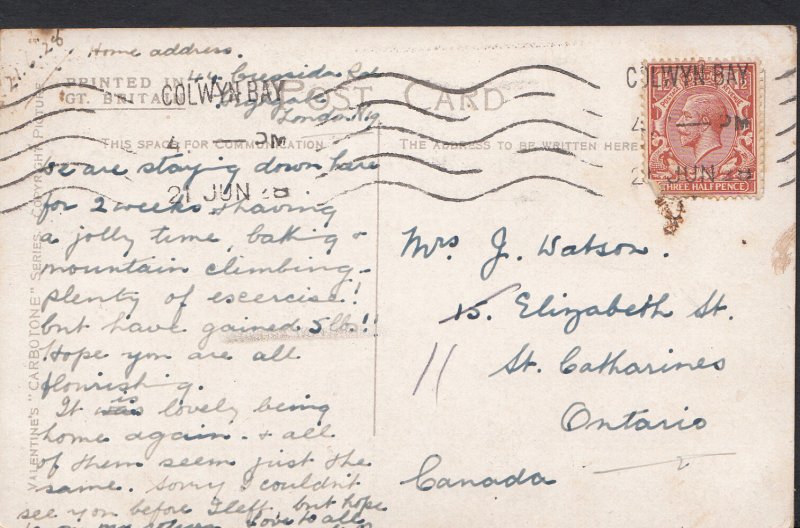 21.6.28
Home address.
44 Cressida Rd
Highgate
London N19
PRINTED IN
GT. BRITAIN
POST CARD
COLWYN BAY
4 — PM
21 JUN 28
COLWYN BAY
4 — PM
21 JUN 28
THREE HALFPENCE
THIS SPACE FOR COMMUNICATION
THE ADDRESS TO BE WRITTEN HERE
VALENTINE'S "CARBOTONE" SERIES. COPYRIGHT PICTURE
We are staying down here
for 2 weeks & having
a jolly time, baking &
mountain climbing -
plenty of excercise!
but have gained 5 lb.!!
Hope you are all
flourishing.
It was is lovely being
home again. & all
of them seem just the
same. Sorry I couldn't
see you before I left. but hope
to on my return. Love to all
Mrs J. Watson.
15. Elizabeth St.
11
St. Catharines
Ontario
Canada